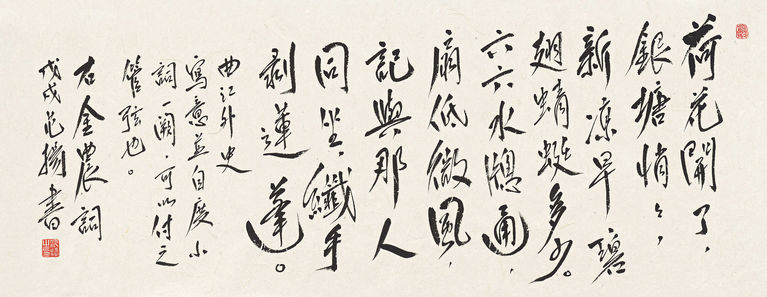 荷花開了，
銀塘悄々，
新涼早碧
翅蜻蜓多少。
六六水窻通，
扇低微風，
記與那人
同坐，纖手
剥蓮蓬。
曲江外史
寫意並自度小
詞一阕，可以付之
管弦也。
右金農詞
戊戌范揚書